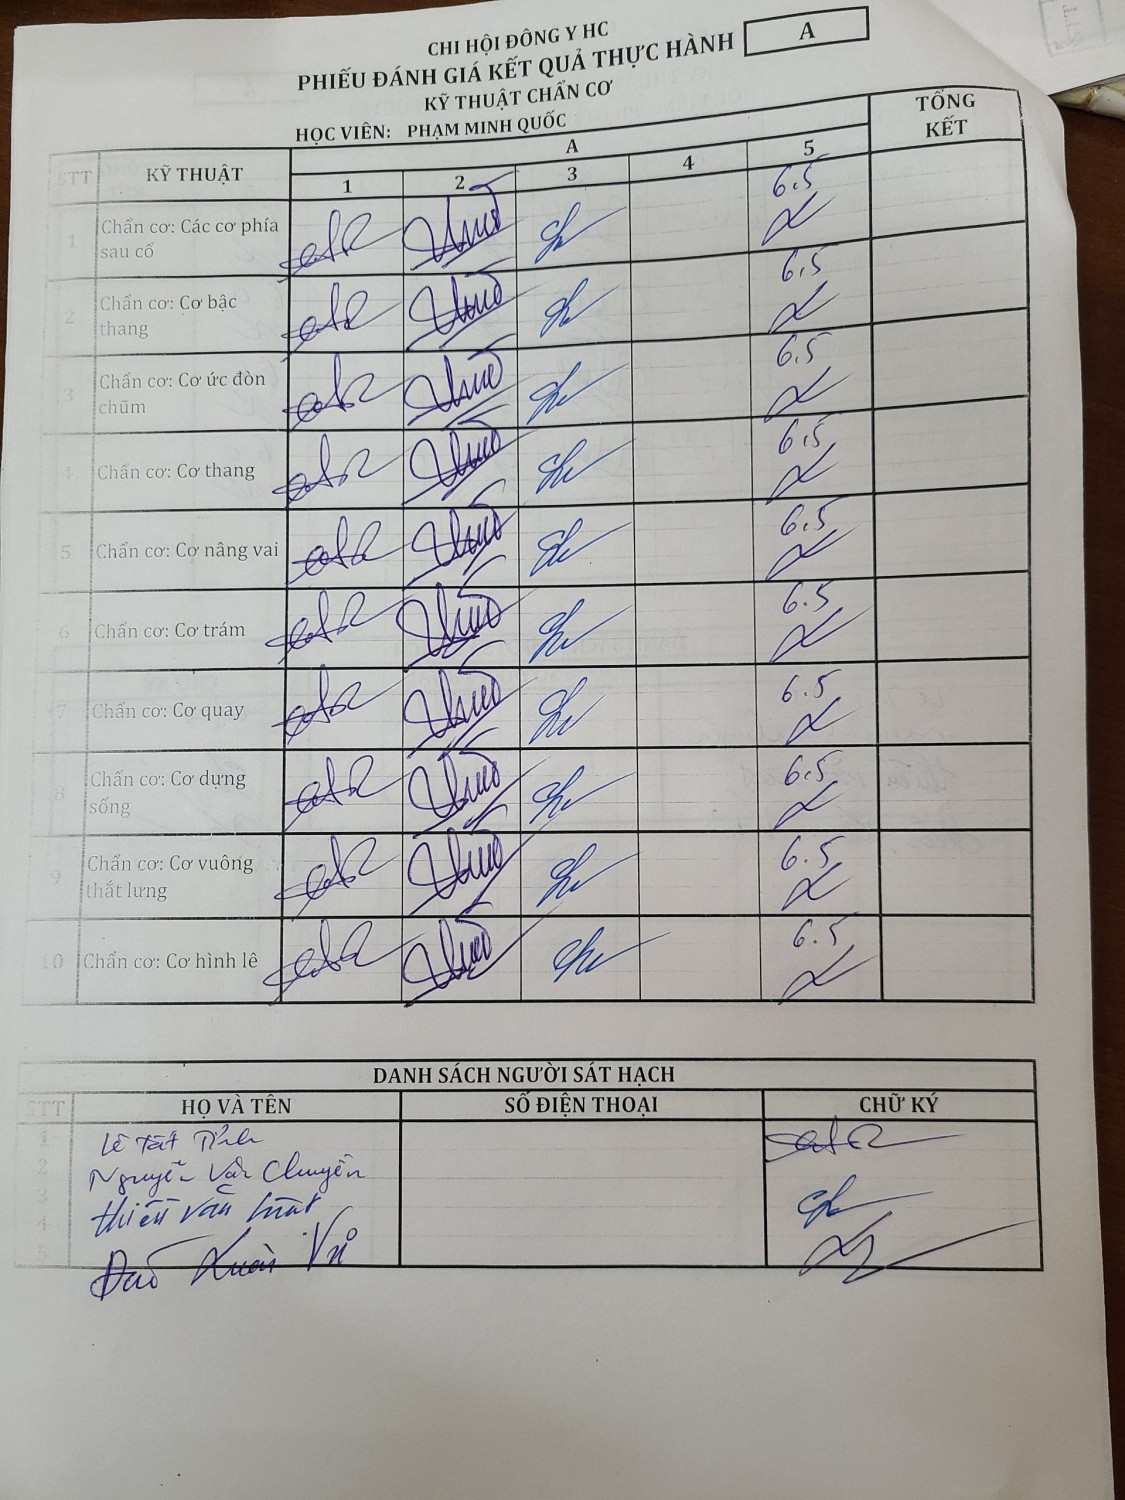 CHI HỘI ĐÔNG Y HC
PHIẾU ĐÁNH GIÁ KẾT QUẢ THỰC HÀNH A
KỸ THUẬT CHẨN CƠ
HỌC VIÊN: PHẠM MINH QUỐC
STT KỸ THUẬT A TỔNG KẾT
1 2 3 4 5
1 Chẩn cơ: Các cơ phía sau cổ 6.5
2 Chẩn cơ: Cơ bậc thang 6.5
3 Chẩn cơ: Cơ ức đòn chũm 6.5
4 Chẩn cơ: Cơ thang 6.5
5 Chẩn cơ: Cơ nâng vai 6.5
6 Chẩn cơ: Cơ trám 6.5
7 Chẩn cơ: Cơ quay 6.5
8 Chẩn cơ: Cơ dựng sống 6.5
9 Chẩn cơ: Cơ vuông thắt lưng 6.5
10 Chẩn cơ: Cơ hình lê 6.5
DANH SÁCH NGƯỜI SÁT HẠCH
STT HỌ VÀ TÊN SỐ ĐIỆN THOẠI CHỮ KÝ
1 Lê Tất
2 Nguyễn Văn Chuyên
3 Văn
4
5 Xuân Vũ